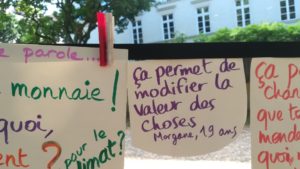 e parole...
monnaie !
quoi,
ent ?
pour le
climat ?
Ça permet de
modifier la
valeur des
choses
Morgane, 19 ans
Ça p
chan
que to
monda
quoi,